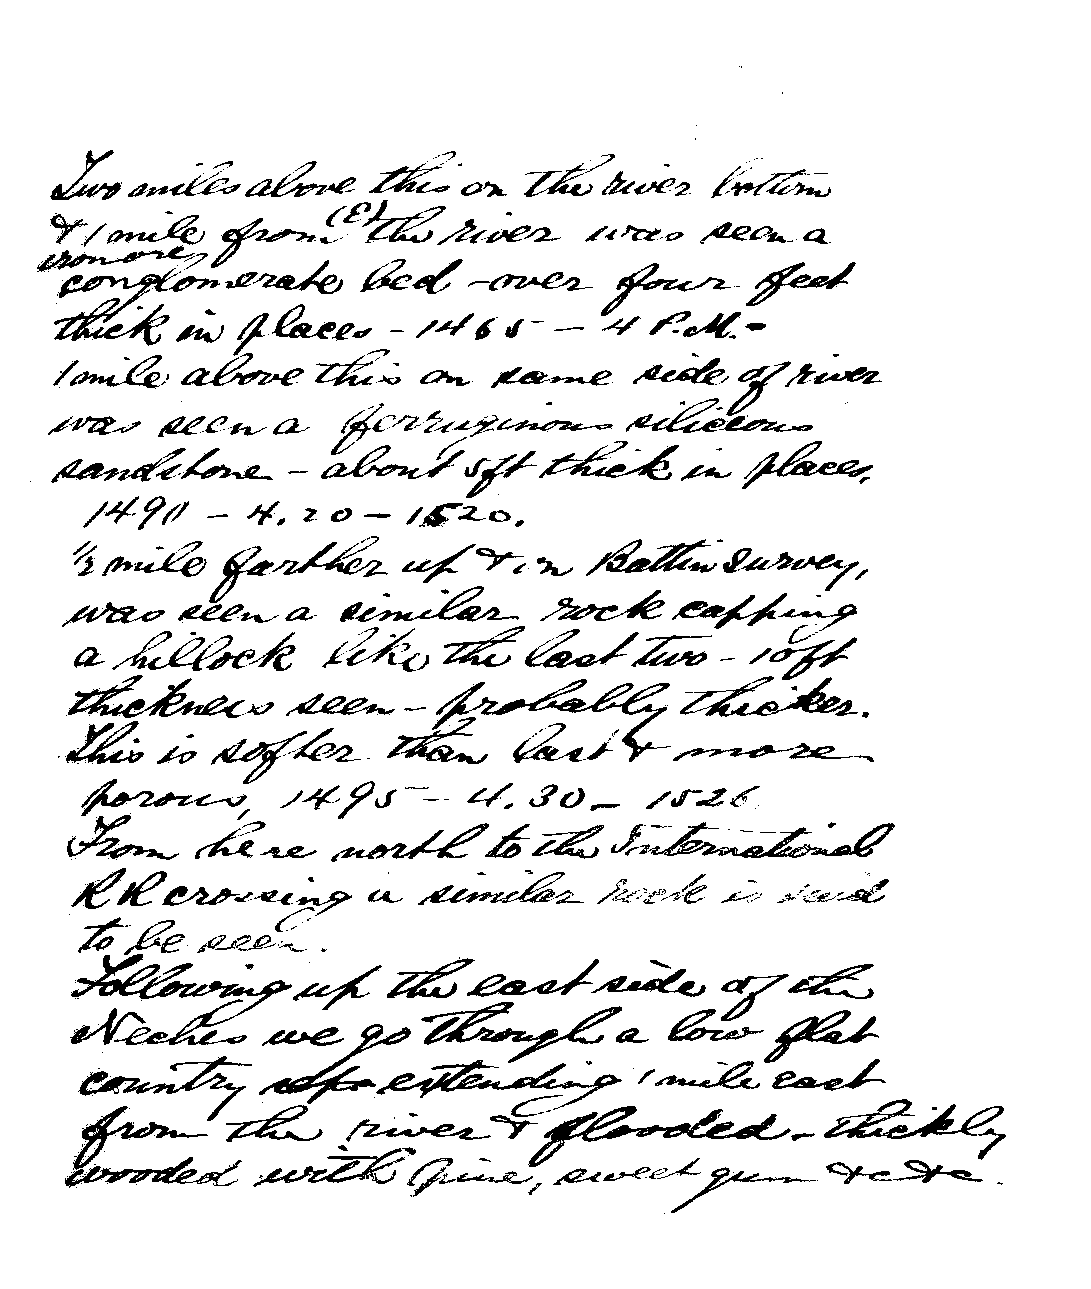 Two miles above this on the river bottom
& 1 mile from (E) the river was seen a
iron ore
conglomerate bed - over four feet
thick in places - 1465 - 4 P.M. -
1 mile above this on same side of river
was seen a ferruginous silicious
sandstone - about 5ft thick in places,
1490 - 4.20 - 1520.
1/2 mile farther up & in Battin Survey,
was seen a similar rock capping
a hillock like the last two - 10ft
thickness seen - probably thicker.
This is softer than last & more
porous, 1495 - 4.30 - 1526
From here north to the International
R R crossing a similar rock is said
to be seen.
Following up the east side of the
Neches we go through a low flat
country extending 1 mile east
from the river & flooded - thickly
wooded with pine, sweet gum &c &c.